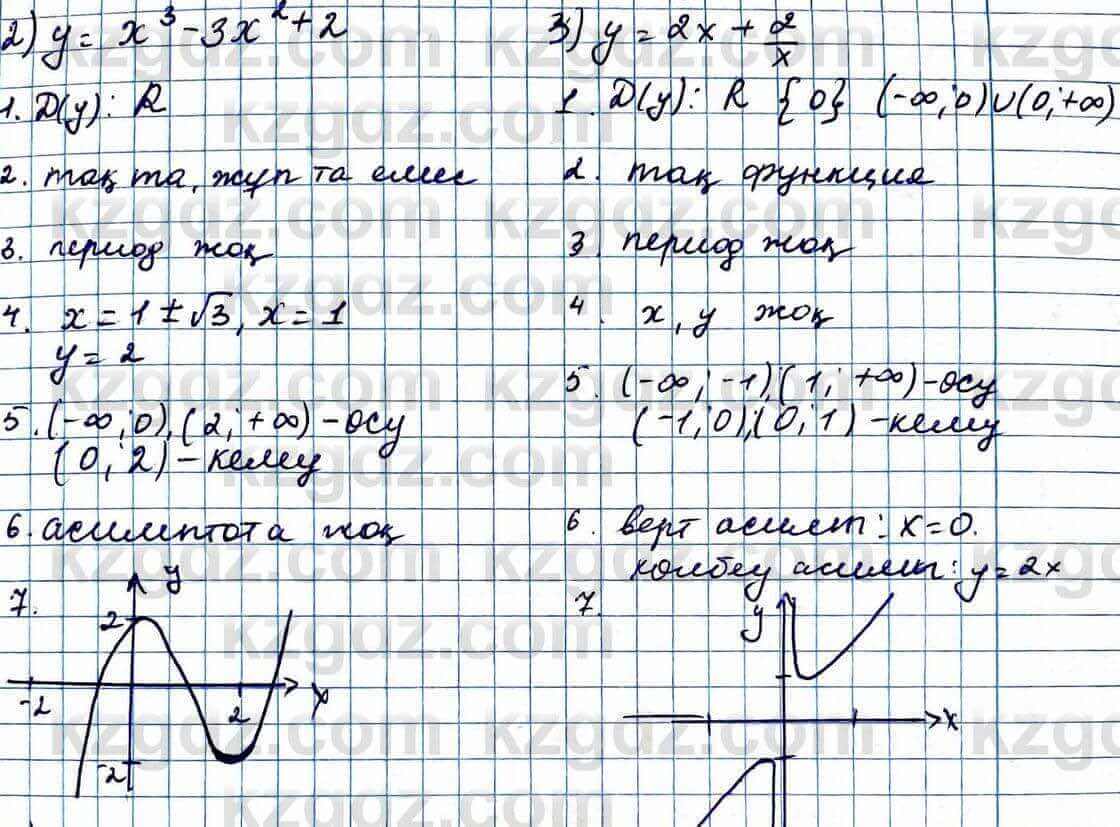 2) y = x³ - 3x² + 2
1. D(y): R
2. тақ та, жұп та емес
3. период жоқ
4. x = 1 ± √3, x = 1
y = 2
5. (-∞; 0), (2; +∞) - өсу
(0; 2) - кему
6. асимптота жоқ
7.
y
2
-2
2
x
-2
3) y = 2x + 2/x
1. D(y): R {0} (-∞; 0) ∪ (0; +∞)
2. тақ функция
3. период жоқ
4. x, y жоқ
5. (-∞; -1), (1; +∞) - өсу
(-1; 0), (0; 1) - кему
6. верт асимпт: x = 0.
көлбеу асимпт: y = 2x
7.
y
x
kzgdz.com